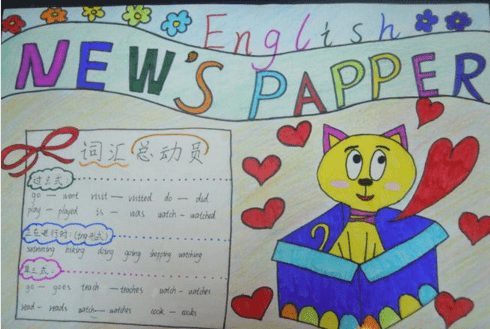 English
NEW'S PAPPER
词汇总动员
过去式:
go — went visit — visited do — did
play — played is — was watch — watched
正在进行时:(ing形式)
swimming hiking doing going shopping watching
第三式:
go — goes teach — teaches watch — watches
read — reads watch — watches cook — cooks